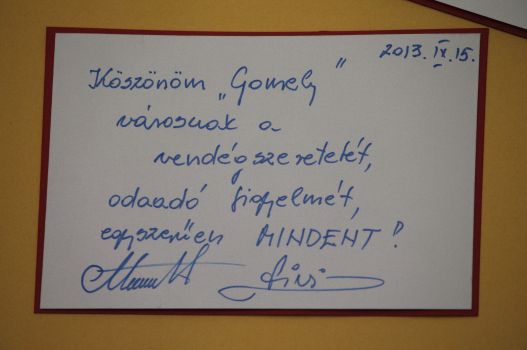 2013. IX. 15.
Köszönöm „Gomely"
városnak a
vendégszeretetét,
odaadó figyelmét,
egyszerűen MINDENT!